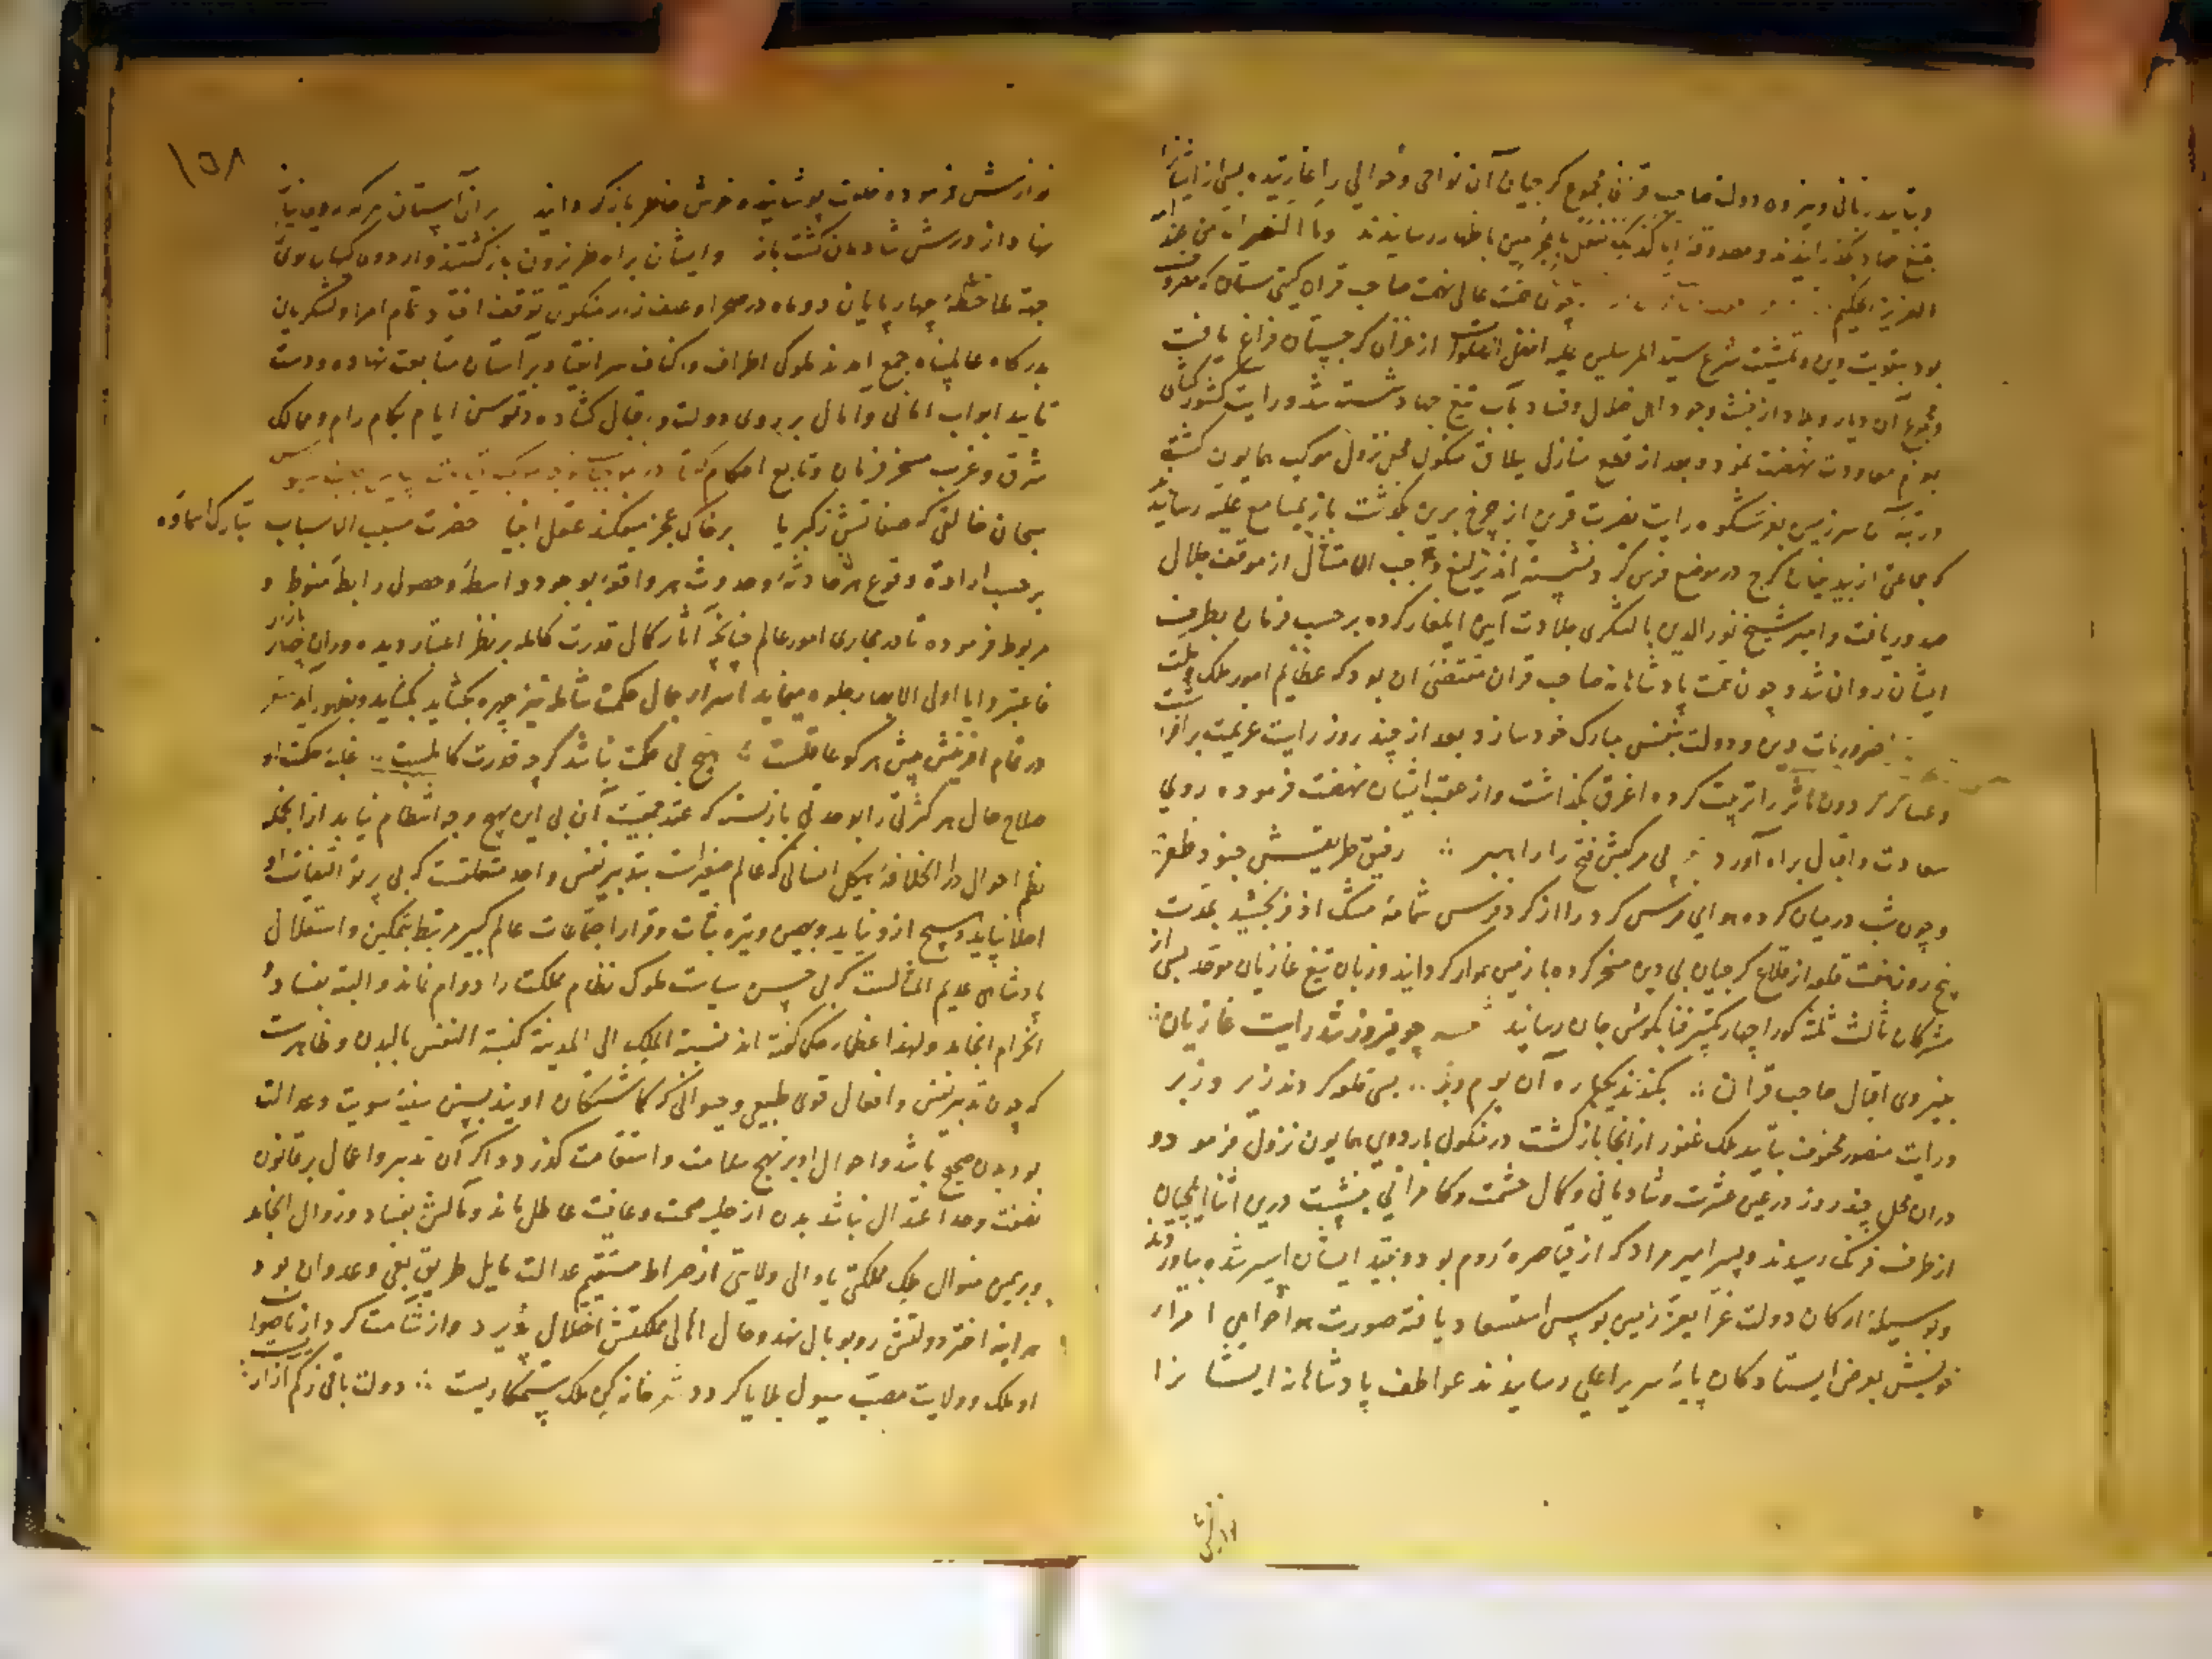 وبتاید ربانی ونیروی دولت صاحب قرانی مجموع کرجیان آن نواحی وحوالی را غارتیده بسی از ایشانرا
بتیغ جهاد بگذرانیدند ومصدوقه انا کذلک نفعل بالمجرمین باظهار رسانیدند وما النصر الا من عند الله
العزیز الحکیم چون همت عالی نهمت صاحب قران کیتی ستان که مصروف
بود بتقویت دین وتمشیت شرع سید المرسلین علیه افضل الصلوات از غزای کرجستان فراغ یافت
ومجموع آن دیار وبلاد از خبث وجود اهل ضلال وفساد بآب تیغ جهاد شسته شد ورایت کشورکشای
بعزم معاودت نهضت نمود وبعد از قطع منازل ییلاق منکول محل نزول موکب همایون کشت
در تبه آن سرزمین بفر شکوه رایت نصرت قرین از چرخ برین بگذشت باز بمسامع علیه رسانید
که جماعتی از بیدینان کرج در موضع فرس کرد نشسته اند یرلیغ واجب الامتثال از موقف جلال
صدور یافت وامیر شیخ نور الدین بالشکری جلادت آیین ایلغار کرده برحسب فرمان بطرف
ایشان روان شد وچون همت پادشاهانه صاحب قران مقتضی ان بود که عظایم امور ملک وملت
ضروریات دین ودولت بنفس مبارک خود سازد بعد از چند روز رایت عزیمت برافراشت
وعساکر کردون مآثر را ترتیب کرده اغرق بگذاشت واز عقب ایشان نهضت فرموده روی
سعادت واقبال براه آورد پی مرکبش فتح را راهبر رفیق طریقش جنود ظفر
وچون شب درمیان کرده هوای فرس کرد را از کرد فرس شمامه مشک اذفر بخشید بمدت
پنج روز هفت قلعه از قلاع کرجیان بی دین مسخر کرده با زمین هموار کردانید وزبان تیغ غازیان موحد بسی از
مشرکان ثالث ثلثه کو را چهار تکبیر فنا بکوش جان رسانید چو فیروز شد رایت غازیان
بنیروی اقبال صاحب قران بکندند یکباره آن بوم وبر بسی قلعه کردند زیر وزبر
ورایت منصور محفوف بتایید ملک غفور از انجا بازکشت در منکول باردوی همایون نزول فرمود و
دران محل چند روز در عین عشرت وشادمانی وکمال حشمت وکامرانی بنشست درین اثنا ایلچیان
از طرف فرنک رسیدند وپسر امیر مراد که از قیاصره روم بود وبقید ایشان اسیر شده بیاوردند
وبوسیله ارکان دولت غرا بعز زمین بوس استسعاد یافته صورت هواخواهی اقرار
خویش بعرض ایستادکان پایه سریر اعلی رسانیدند عواطف پادشاهانه ایشانرا
۱۵۸
نوازش فرموده خلعت پوشانیده خوش خاطر بازکردانید بران آستان هرکه روی نیاز
نهاد از درش شادمان کشت باز وایشان براه طربزون بازکشتند واردوی کیهان پوی
جهة ملاحظه چهارپایان دو ماه در صحرا وعلف زار منکول توقف افتاد وتمام امرا ولشکریان
بدرکاه عالمپناه جمع امدند ملوک اطراف واکناف سر انقیاد بر آستان متابعت نهاده ودست
تایید ابواب امانی وامال بر روی دولت واقبال کشاده وتوسن ایام بکام رام وممالک
شرق وغرب مسخر فرمان وتابع احکام
سبحان خالقی که صفاتش زکبریا برخاک عجز میفکند عقل انبیا حضرت مسبب الاسباب تبارک اسماؤه
برحسب اراده وقوع هر حادثه وحدوث هر واقعه بوجود واسطه وحصول رابطه منوط و
مربوط فرموده تا در مجاری امور عالم چنانکه آثار کمال قدرت کامله بر نظر اعتبار دیده وران بازار
فاعتبروا یا اولی الابصار جلوه مینماید اسرار جمال حکمت شامله نیز چهره بکشاید
در تمام افرینش پیش هرکو عاقلست هیچ بی حکمت نباشد کرچه قدرت کاملست غایة حکمت او
صلاح حال هر کثرتی را بوحدتی بازبسته که عقد جمعیت آن بی این بهیچ وجه انتظام نیابد از انجمله
نظم احوال دار الخلافه هیکل انسانی که عالم صغیر است بتدبیر نفس واحد متعلقست که بی پرتو التفات او
اصلا نپاید وهیچ ازو نیاید وبهمین وتیره ثبات وقرار اجتماعات عالم کبیر مرتبط بتمکین واستقلال
پادشاهی عدیم المثالست که بی حسن سیاست ملوک نظام مملکت را دوام نماند والبته بفساد و
انخرام انجامد ولهذا عظماء حکما کفته اند نسبة الملک الی المدینة کنسبة النفس بالبدن وظاهرست
که چون تدبیر نفس وافعال قوی طبیعی وحیوانی که کماشتکان اویند بحسن سویت وعدالت
بود بدن صحیح باشد واحوال او بر نهج سلامت واستقامت کذرد واکر آن تدبیر واعمال بر قانون
نصفت وحد اعتدال نباشد بدن از حلیه صحت وعافیت عاطل ماند ومآلش بفساد وزوال انجامد
وبرهمین منوال ملک مملکتی یا والی ولایتی از صراط مستقیم عدالت مایل طریق بغی وعدوان بود
هرآینه اختر دولتش رو بوبال نهد وحال اهالی مملکتش اختلال پذیرد واز شآمت کردار ناصواب
او ملک وولایت مصب سیول بلایا کردد خانه کن ملک ستمکاریست دولت باقی زکم آزاریست